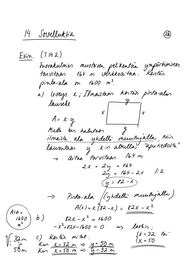 14 Sovelluksia
Esim. (T142)
Suorakulmion muotoisen pelikentän ympäröimiseen
tarvitaan 164 m verkkoaitaa. Kentän
pinta-ala on 1600 m².
a) Leveys x; Ilmaistaan kentän pinta-alan
lauseke
A = x·y
x
x
y
Mutta on haluttava
ilmaista ala yhdellä muuttujalla, niin
lausutaan y x:n avulla
→ Aitaa tarvitaan 164 m
2x + 2y = 164
2y = 164 - 2x 1:2
y = 82 - x
→ Pinta-ala (yhdellä muuttujalla)
A(x) = x(82 - x) = 82x - x²
Ala =
1600
b) 82x - x² = 1600
-x² + 82x - 1600 = 0 → laskin
x = 32 tai
x = 50
c) Kentän mitat:
Kun x = 32 m → y = 50 m
Kun x = 50 m → y = 32 m
V: 32 m
50 m